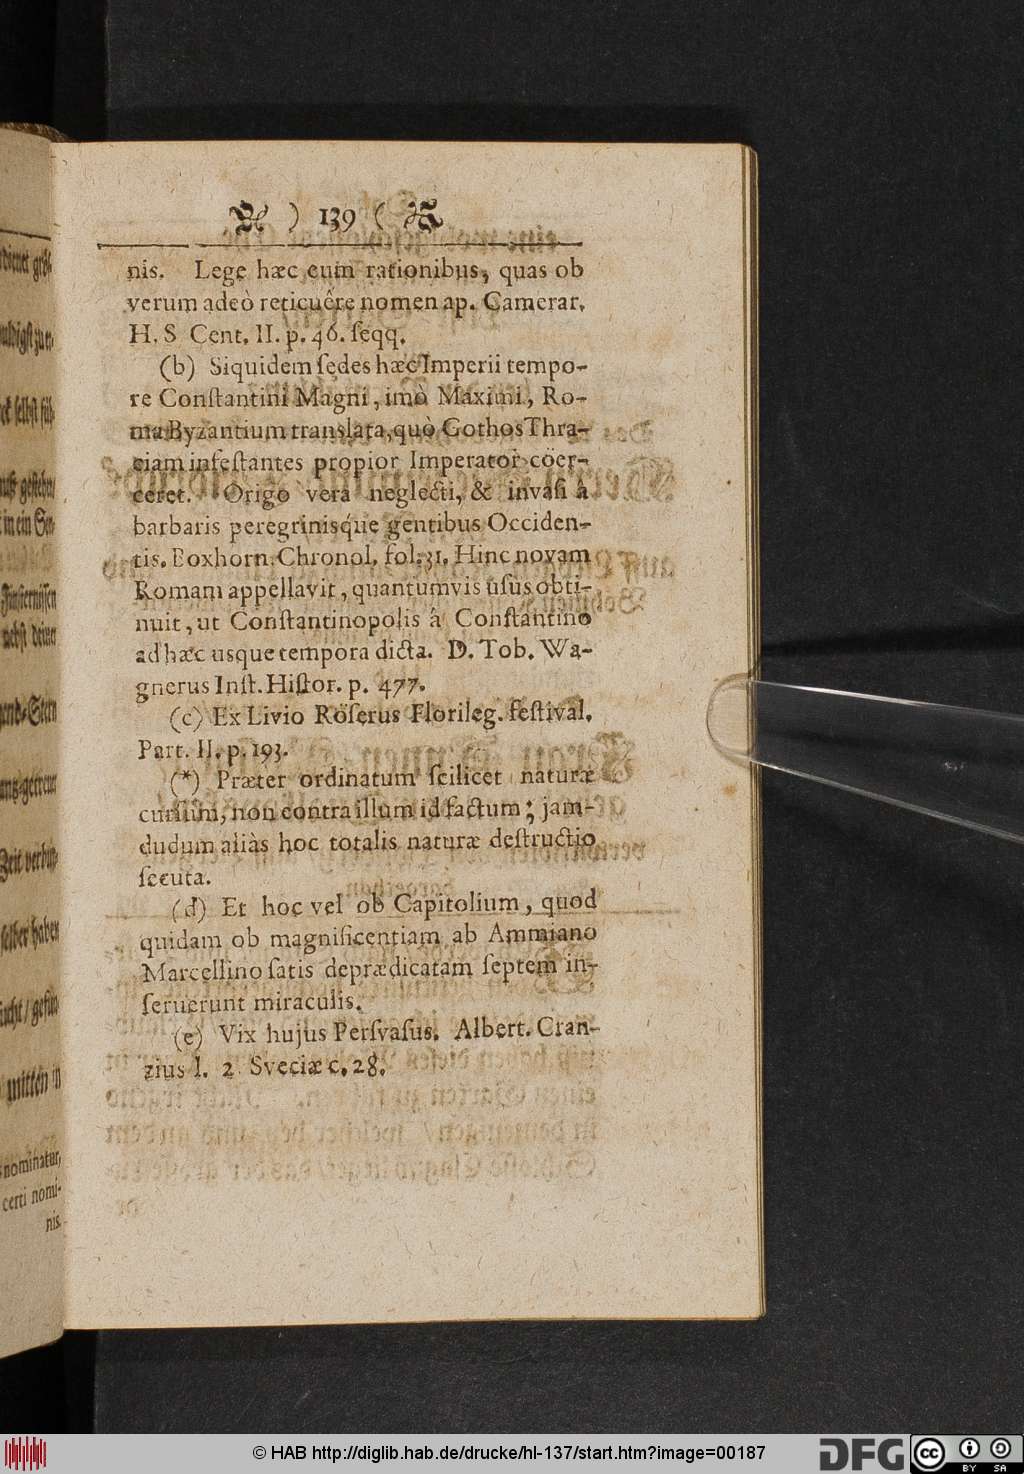 ) 139 (
nis. Lege hæc cum rationibus, quas ob
verum adeò reticuêre nomen ap. Camerar.
H. S Cent. II. p. 46. ſeqq.
(b) Siquidem ſedes hæc Imperii tempo-
re Conſtantini Magni, imò Maximi, Ro-
ma Byzantium translata, quò Gothos Thra-
ciam infeſtantes propior Imperator cöer-
ceret. Origo vera neglecti, & invaſi à
barbaris peregrinisq́ue gentibus Occiden-
tis. Boxhorn. Chronol. fol. 31. Hinc novam
Romam appellavit, quantumvis uſus obti-
nuit, ut Conſtantinopolis á Conſtantino
ad hæc usque tempora dicta. D. Tob. Wa-
gnerus Inſt. Hiſtor. p. 477.
(c) Ex Livio Röſerus Florileg. feſtival.
Part. II. p. 193.
(*) Præter ordinatum ſcilicet naturæ
curſum, non contra illum id factum; jam-
dudum aliàs hoc totalis naturæ deſtructio
ſecuta.
(d) Et hoc vel ob Capitolium, quod
quidam ob magnificentiam ab Ammiano
Marcellino ſatis deprædicatam ſeptem in-
ſeruerunt miraculis.
(e) Vix hujus Perſvaſus. Albert. Cran-
zius l. 2 Sveciæ c. 28.
mitten in
nominatur,
certi nomi-
nis.
© HAB http://diglib.hab.de/drucke/hl-137/start.htm?image=00187
DFG
cc
BY SA